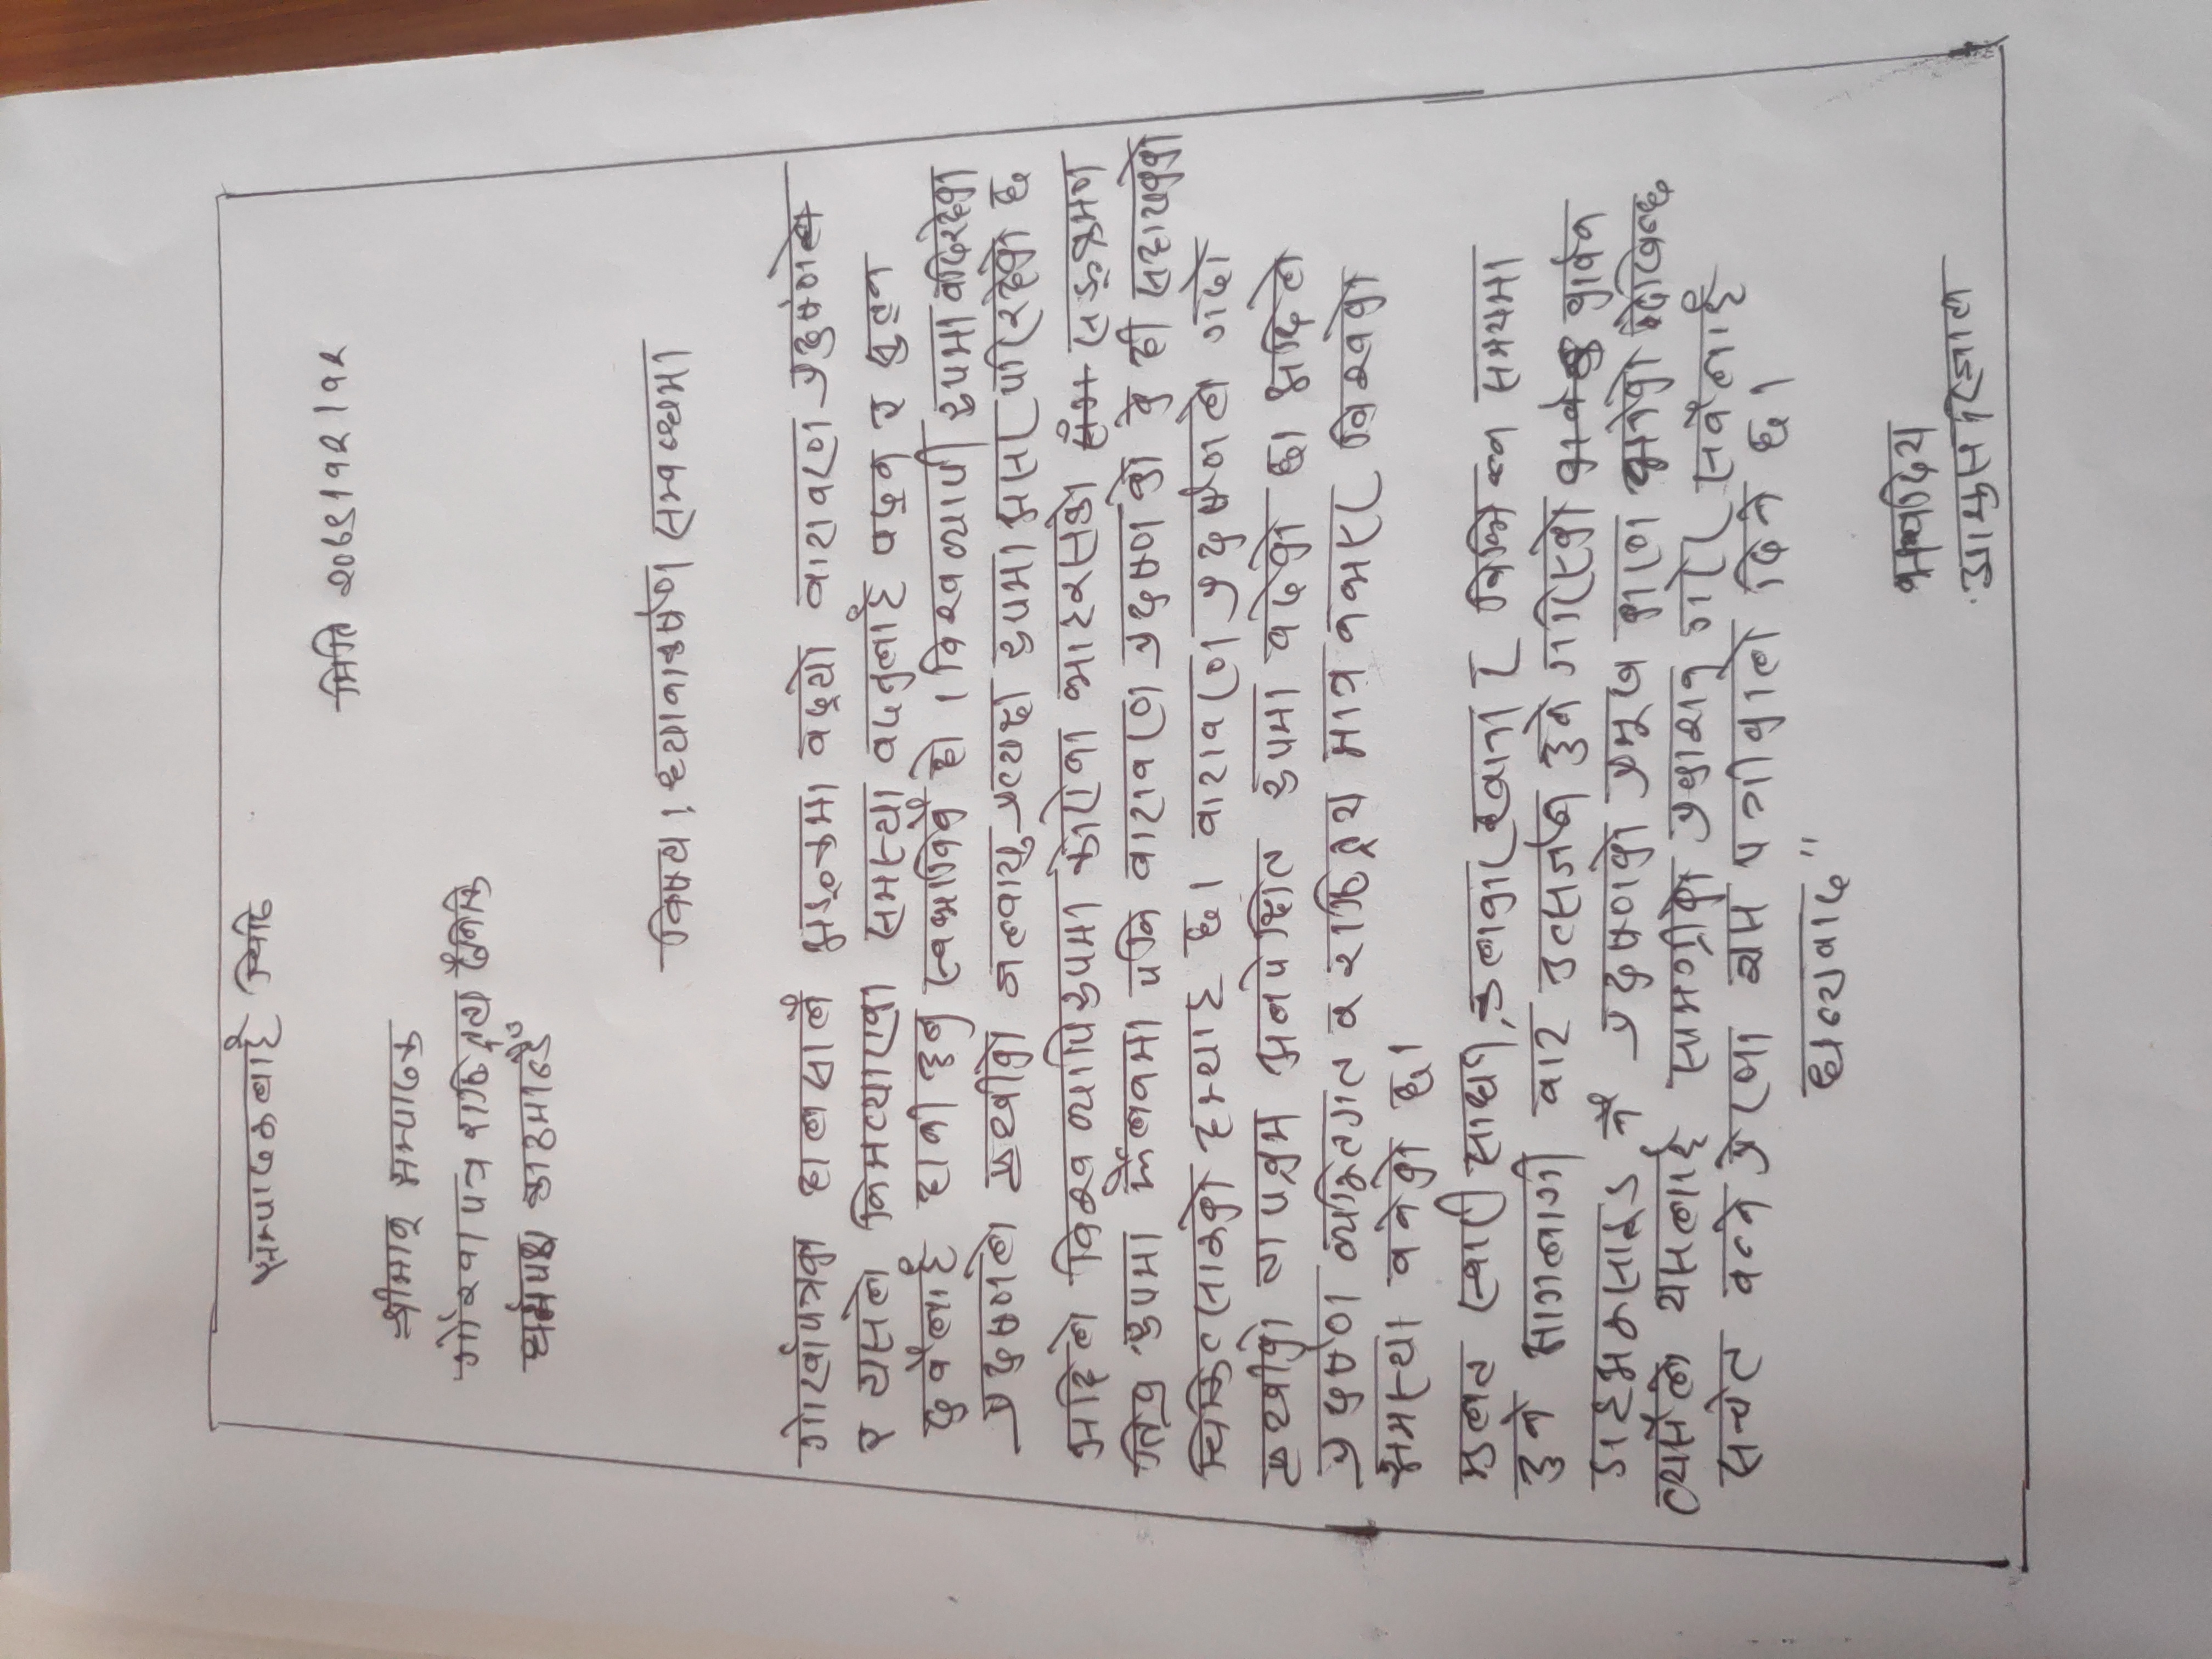 सम्पादकलाई चिठि
मिति २०७९।१२।१२
श्रीमान् सम्पादक
गोरखा पत्र राष्ट्रिय दैनिकि
धर्मपथ काठमान्डौँ
विषय। ध्यानाकर्षण सम्बन्धमा
गोर्खापत्रका हालसालै अङ्कमा बढ्यो वातावरण प्रदुर्षणले
र यसले निम्त्याएका समस्या बढनुलाई पढ्न र सुन्न
दुवैलाई हानी हुनु स्वभाविकै हो । विश्वव्यापी रुपमा बढिरहेका
प्रदुषणले पृथ्वीको जलवायु प्रत्यक्ष रुपमा असर पारिरहेको छ
अहिले विश्व व्यापिरुपमा कोरोना भाइरसको सङ्क्रमण
तिव्र रुपमा फैलनमा पनि वातावरण प्रदुषणको के ही सहायकको
चिकित्सारुको हम्याइ छ। वातावरण प्रदुर्षणले गर्दा
पृथ्वीको तापक्रम अनपेक्षित रुपमा बढेको छ। अहिले
प्रदुर्षण व्यक्तिगत व राष्ट्रिय मात्र नभएर विश्वको
समस्या बनेको छ।
मुलत स्वारी साधन, कलकारखाना र विभिन्न समयमा
हुने आगलागी बाट उत्सर्जन हुने गरिएको कार्बन
डाइअक्साइड नै प्रदुषणको प्रमूख कारण बनेको देखिन्छ
त्यसैले यसलाई सामग्रीको प्रकाशन् गरेर सबैलाई
सचेत बन्ने प्रेरणा यस पत्रीकाले दिने छ।
धन्यवाद"
भवदिय
आयुस रिजाल